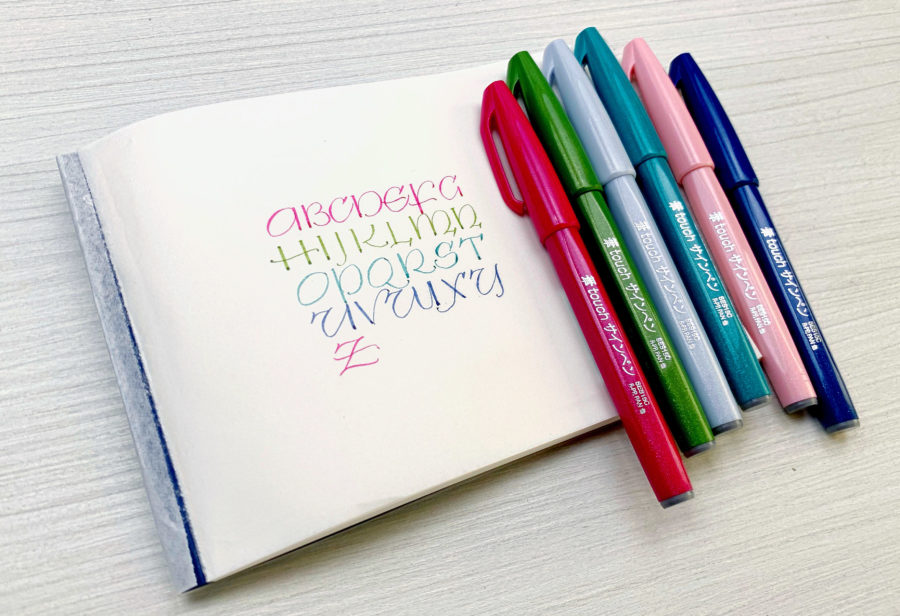 ABCDEFG
HIJKLMN
OPQRST
UVWXY
Z
touch サインペン
touch サインペン
touch サインペン
touch サインペン
touch サインペン
touch サインペン